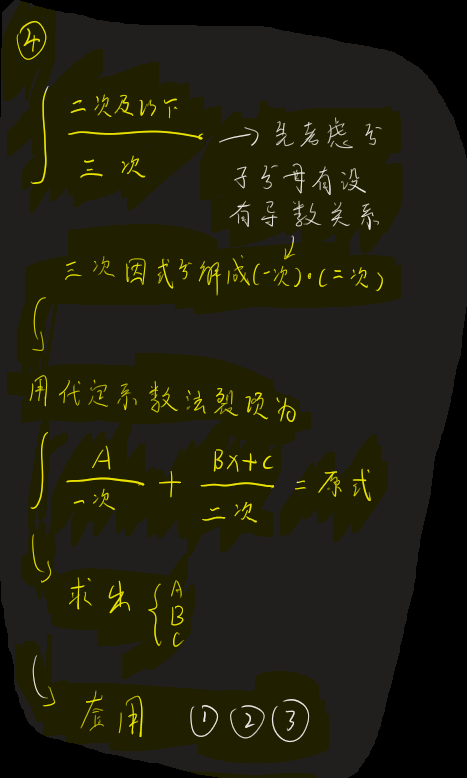 ④
∫ 二次及以下 / 三次 → 先考虑分
子分母有没
有导数关系
三次因式分解成(一次)·(二次)
用代定系数法裂项为
∫ A/一次 + Bx+C/二次 = 原式
求出 { A B C
套用 ① ② ③